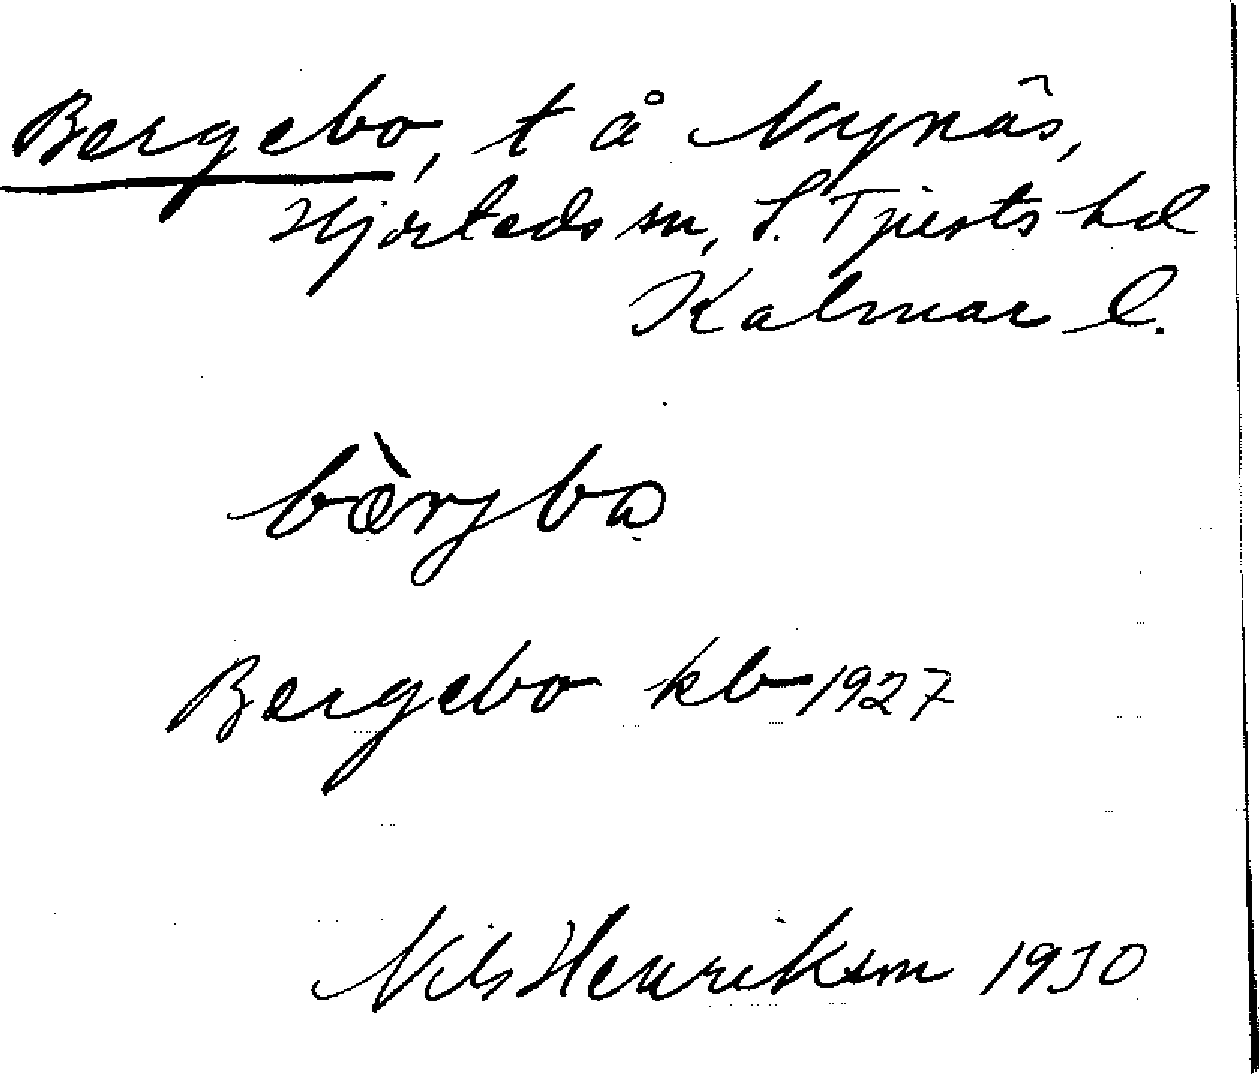 Bergebo, t å Nynäs,
Hjorteds sn, S. Tjusts hd
Kalmar l.
bæ̀rjbo
Bergebo kb 1927
Nils Henriksson 1930